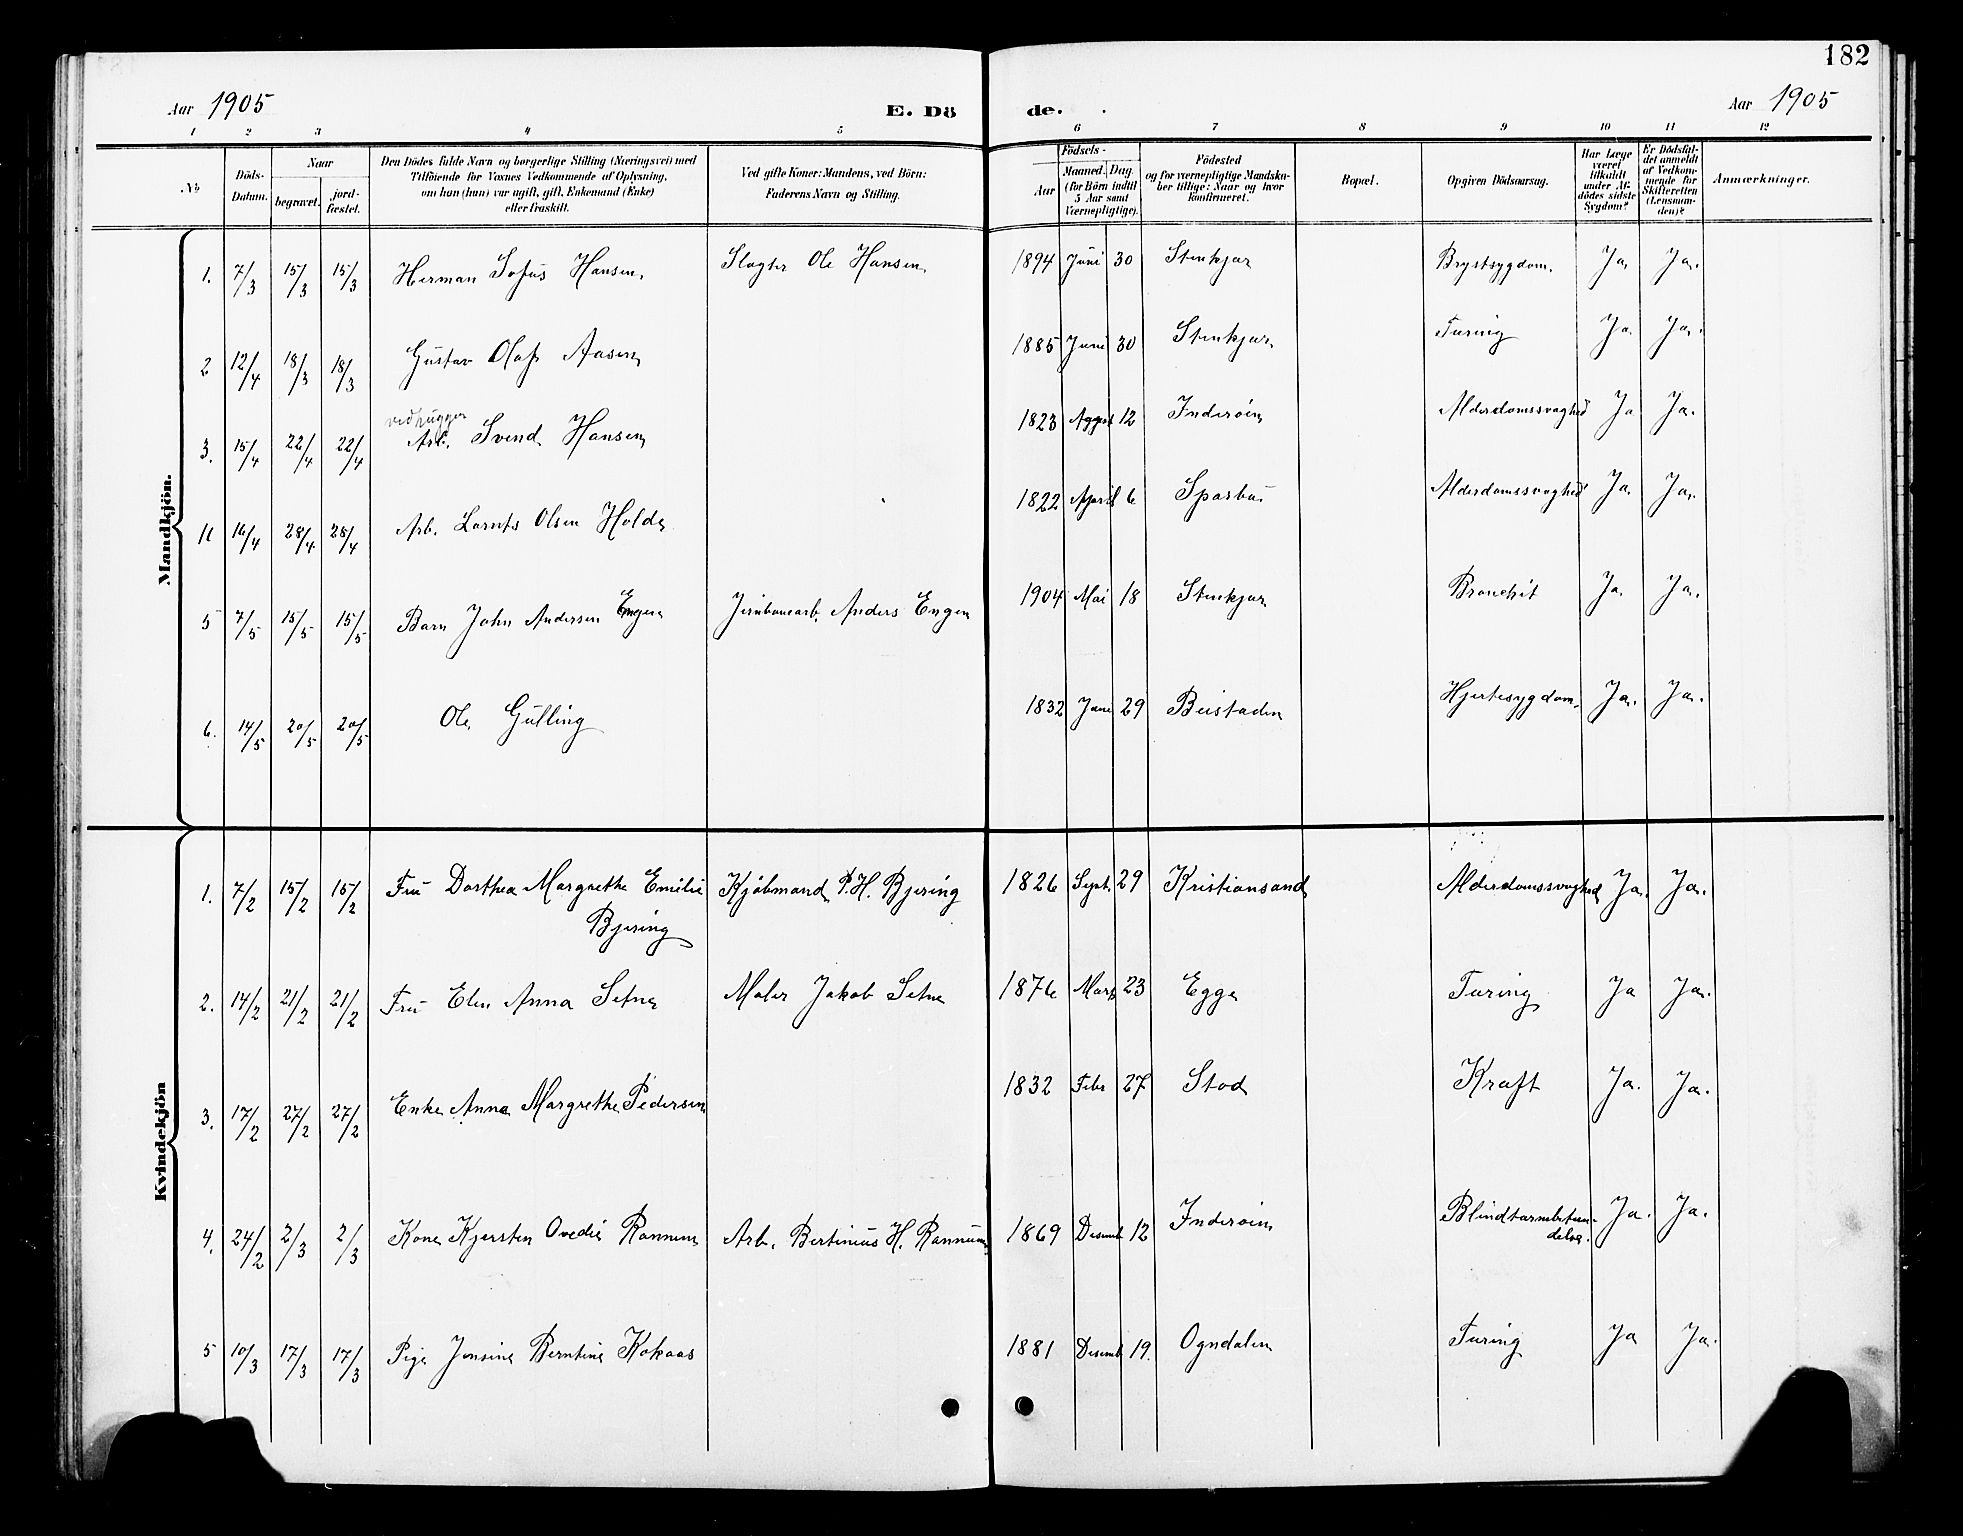 182
Aar 1905 E. Dö de. Aar 1905
1 2 3 4 5 6 7 8 9 10 11 12
No
Döds-Datum.
Naar begravet. jord-fæstet.
Den Dödes fulde Navn og borgerlige Stilling (Næringsvei) med
Tilföiende for Voxnes Vedkommende af Oplysning,
om han (hun) var ugift, gift, Enkemand (Enke)
eller fraskilt.
Ved gifte Koner: Mandens, ved Börn:
Faderens Navn og Stilling.
Födsels-
Aar Maaned. Dag.
(for Börn indtil
5 Aar samt
Værnepligtige).
Födested
og for værnepligtige Mandska-
ber tillige: Naar og hvor
konfirmeret.
Bopæl.
Opgiven Dödsaarsag.
Har Læge
været
tilkaldt
under Af-
dödes sidste
Sygdom?
Er Dödsfal-
det anmeldt
af Vedkom-
mende for
Skifteretten
(Lensman-
den)?
Anmærkninger.
Mandkjön.
1. 7/3 15/3 15/3 Herman Sofus Hansen, Slagter Ole Hansen, 1894 Juni 30 Stenkjær Brystsygdom. Ja. Ja.
2 12/4 18/3 18/3 Gustav Olaf Aasen 1885 Juni 30 Stenkjær Tæring Ja. Ja.
vedhugger
3. 15/4 22/4 22/4 Arb. Svend Hansen 1823 August 12 Inderøen Alderdomssvaghed Ja Ja.
4 16/4 28/4 28/4 Arb. Lornts Olsen Holde 1822 April 6 Sparbu Alderdomssvaghed Ja. Ja.
5 7/5 15/5 15/5 Barn John Andersen Engen Jernbanearb. Anders Engen 1904 Mai 18 Stenkjær Bronchit Ja. Ja.
6. 14/5 20/5 20/5 Ole Gulling 1832 29 Beistaden Hjertesygdom. Ja. Ja.
Kvindekjön
1. 7/2 15/2 15/2 Fru Dorthea Margrethe Emilie Kjøbmand P. H. Bjering 1826 Sept. 29 Kristiansand Alderdomssvaghed Ja. Ja.
Bjering
2. 14/2 21/2 21/2 Fru Elen Anna Setne Maler Jakob Setne 1876 Marts 23 Egge Tæring Ja Ja.
3. 17/2 27/2 27/2 Enke Anna Margrethe Pedersen 1832 Febr 27 Stod Kræft Ja. Ja.
4. 24/2 2/3 2/3 Kone Kjersten Ovedie Rannem Arb. Bertinius H. Rannem 1869 Desemb 12 Inderøen Blindtarmbetæn- Ja. Ja.
delse.
5 10/3 17/3 17/3 Pige Jensine Berntine Kokaas 1881 Desemb 19. Ogndalen Tæring Ja Ja.